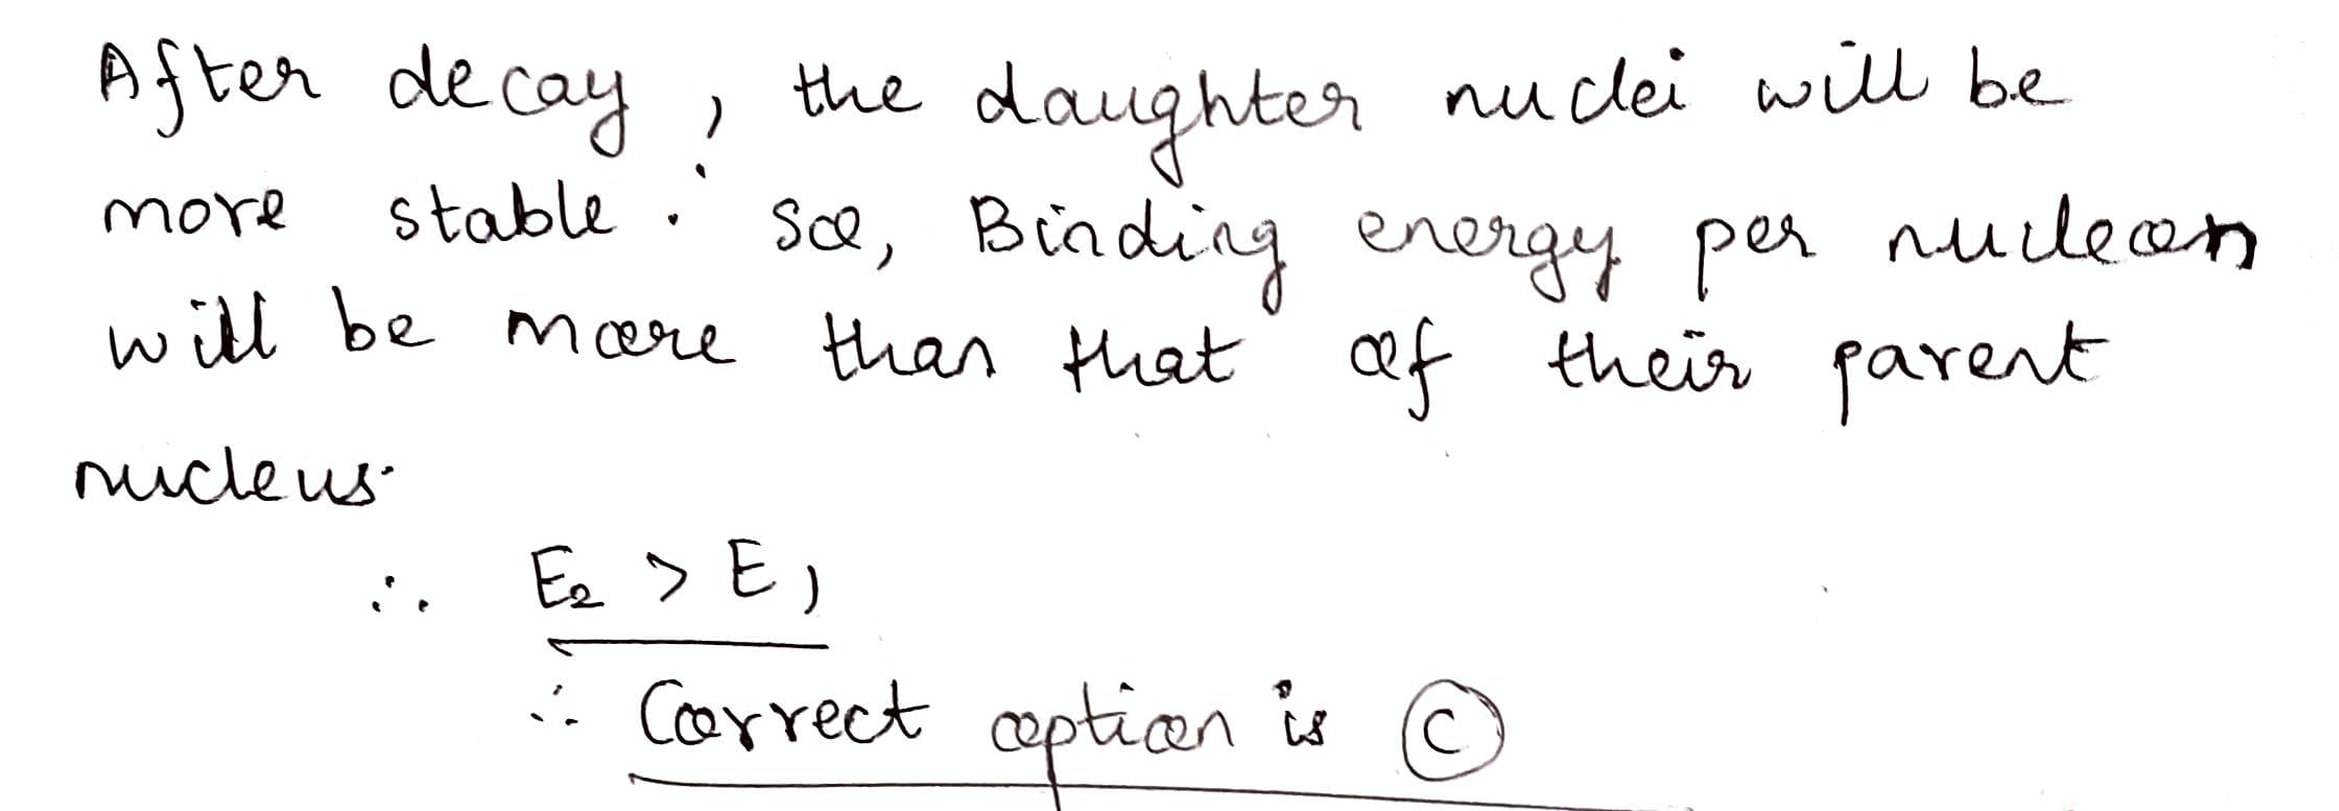 After decay, the daughter nuclei will be
more stable. So, Binding energy per nucleon
will be more than that of their parent
nucleus.
∴ E₂ > E₁
∴ Correct option is (C)